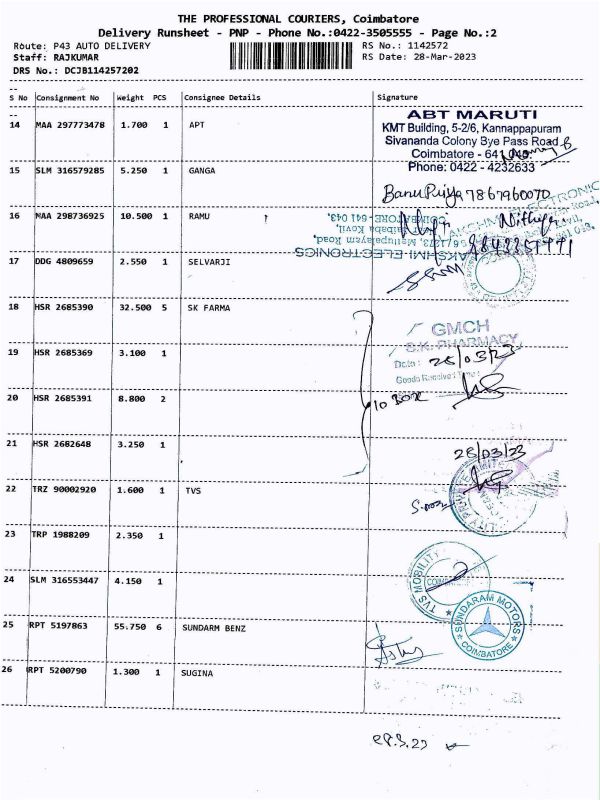 THE PROFESSIONAL COURIERS, Coimbatore
Delivery Runsheet - PNP - Phone No.:0422-3505555 - Page No.:2
Route: P43 AUTO DELIVERY RS No.: 1142572
Staff: RAJKUMAR RS Date: 28-Mar-2023
DRS No.: DCJB114257202
S No Consignment No Weight PCS Consignee Details Signature
14 MAA 297773478 1.700 1 APT
ABT MARUTI
KMT Building, 5-2/6, Kannappapuram
Sivananda Colony Bye Pass Road
Coimbatore - 641
Phone: 0422 - 4232633
15 SLM 316579285 5.250 1 GANGA
Banu Priya 7867960070
16 MAA 298736925 10.500 1 RAMU
COIMBATORE-641 043.
Mettupalayam Road,
LAKSHMI ELECTRONICS
17 DDG 4809659 2.550 1 SELVARJI
18 HSR 2685390 32.500 5 SK FARMA
GMCH
S.K. PHARMACY
Date: 28/03/23
19 HSR 2685369 3.100 1
Goods Received Time:
20 HSR 2685391 8.800 2
10 BOX
21 HSR 2682648 3.250 1
28/03/23
22 TRZ 90002920 1.600 1 TVS
23 TRP 1988209 2.350 1
24 SLM 316553447 4.150 1
TVS MOBILITY
25 RPT 5197863 55.750 6 SUNDARM BENZ
SUNDARAM MOTORS
COIMBATORE
26 RPT 5200790 1.300 1 SUGINA
28.3.23